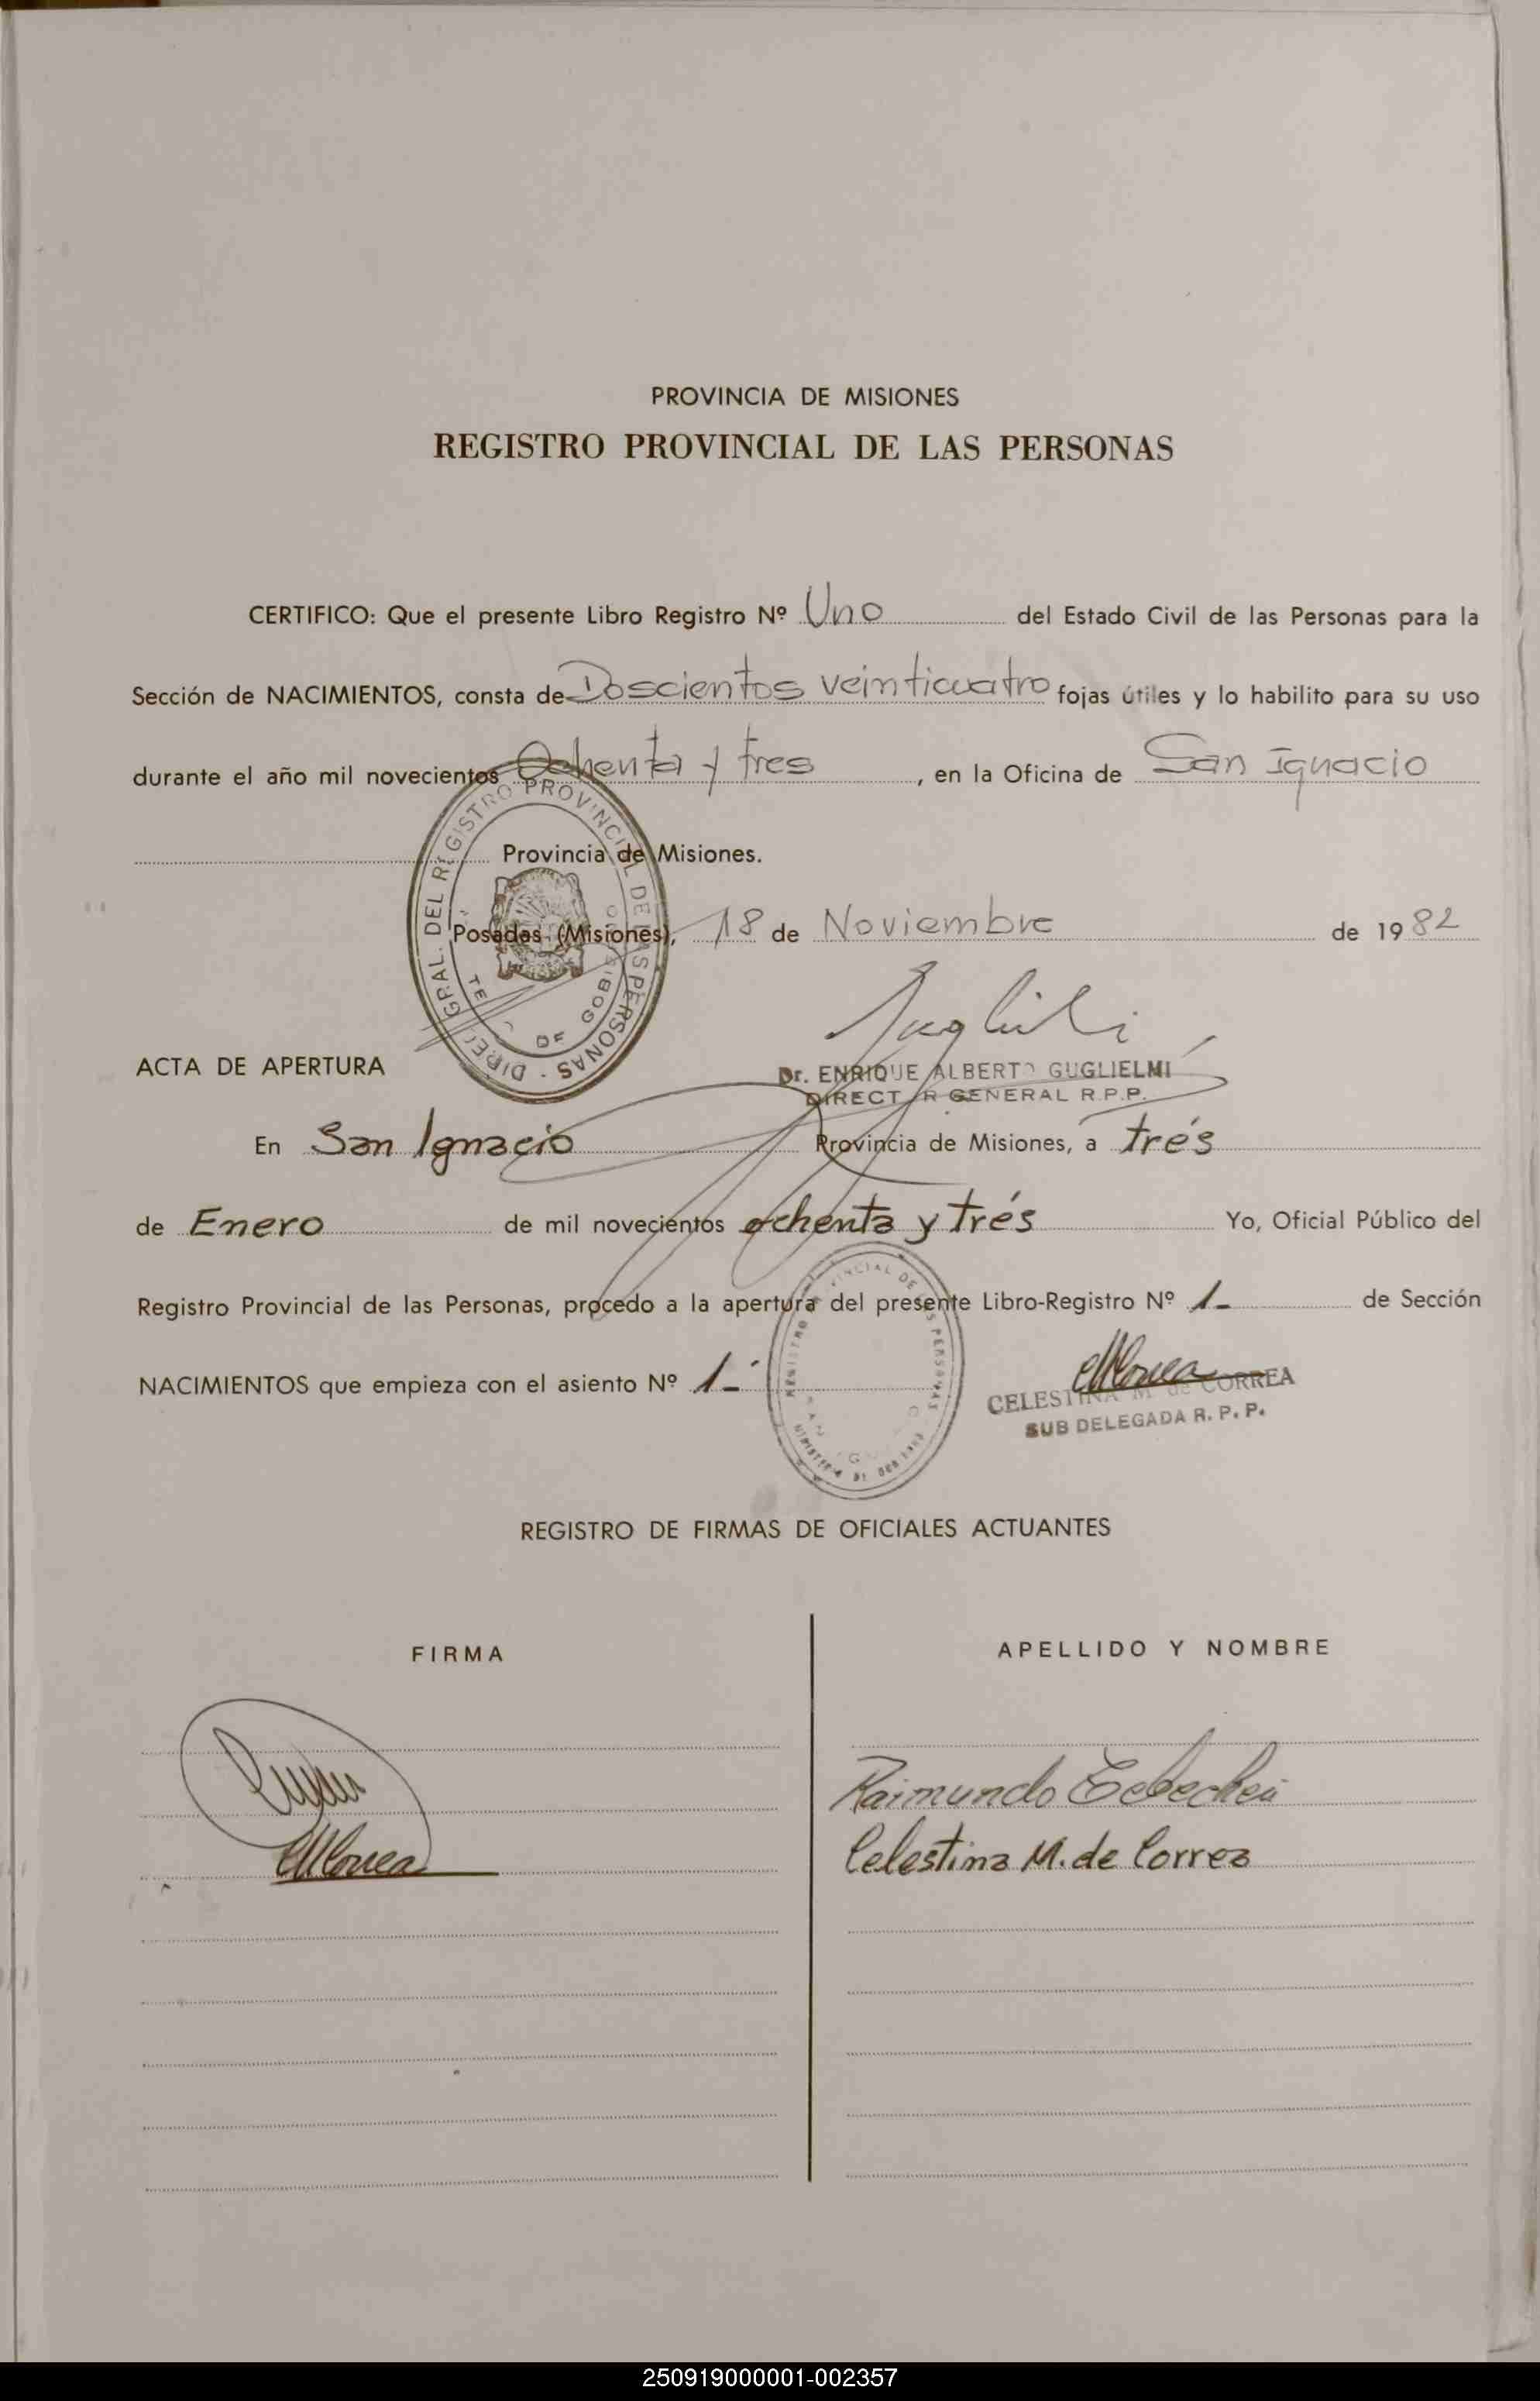 PROVINCIA DE MISIONES
REGISTRO PROVINCIAL DE LAS PERSONAS
CERTIFICO: Que el presente Libro Registro Nº Uno del Estado Civil de las Personas para la
Sección de NACIMIENTOS, consta de Doscientos veinticuatro fojas útiles y lo habilito para su uso
durante el año mil novecientos Ochenta y tres, en la Oficina de San Ignacio
Provincia de Misiones.
DIREC GRAL. DEL REGISTRO PROVINCIAL DE LAS PERSONAS
DE GOBIERNO
Posadas (Misiones), 18 de Noviembre de 1982
ACTA DE APERTURA
Dr. ENRIQUE ALBERTO GUGLIELMI
DIRECTOR GENERAL R.P.P.
En San Ignacio Provincia de Misiones, a trés
de Enero de mil novecientos ochenta y trés Yo, Oficial Público del
Registro Provincial de las Personas, procedo a la apertura del presente Libro-Registro Nº 1- de Sección
NACIMIENTOS que empieza con el asiento Nº 1-
REGISTRO PROVINCIAL DE LAS PERSONAS
MINISTERIO DE GOBIERNO
CELESTINA M de CORREA
SUB DELEGADA R. P. P.
REGISTRO DE FIRMAS DE OFICIALES ACTUANTES
FIRMA APELLIDO Y NOMBRE
Raimundo
Celestina M. de Correa
250919000001-002357